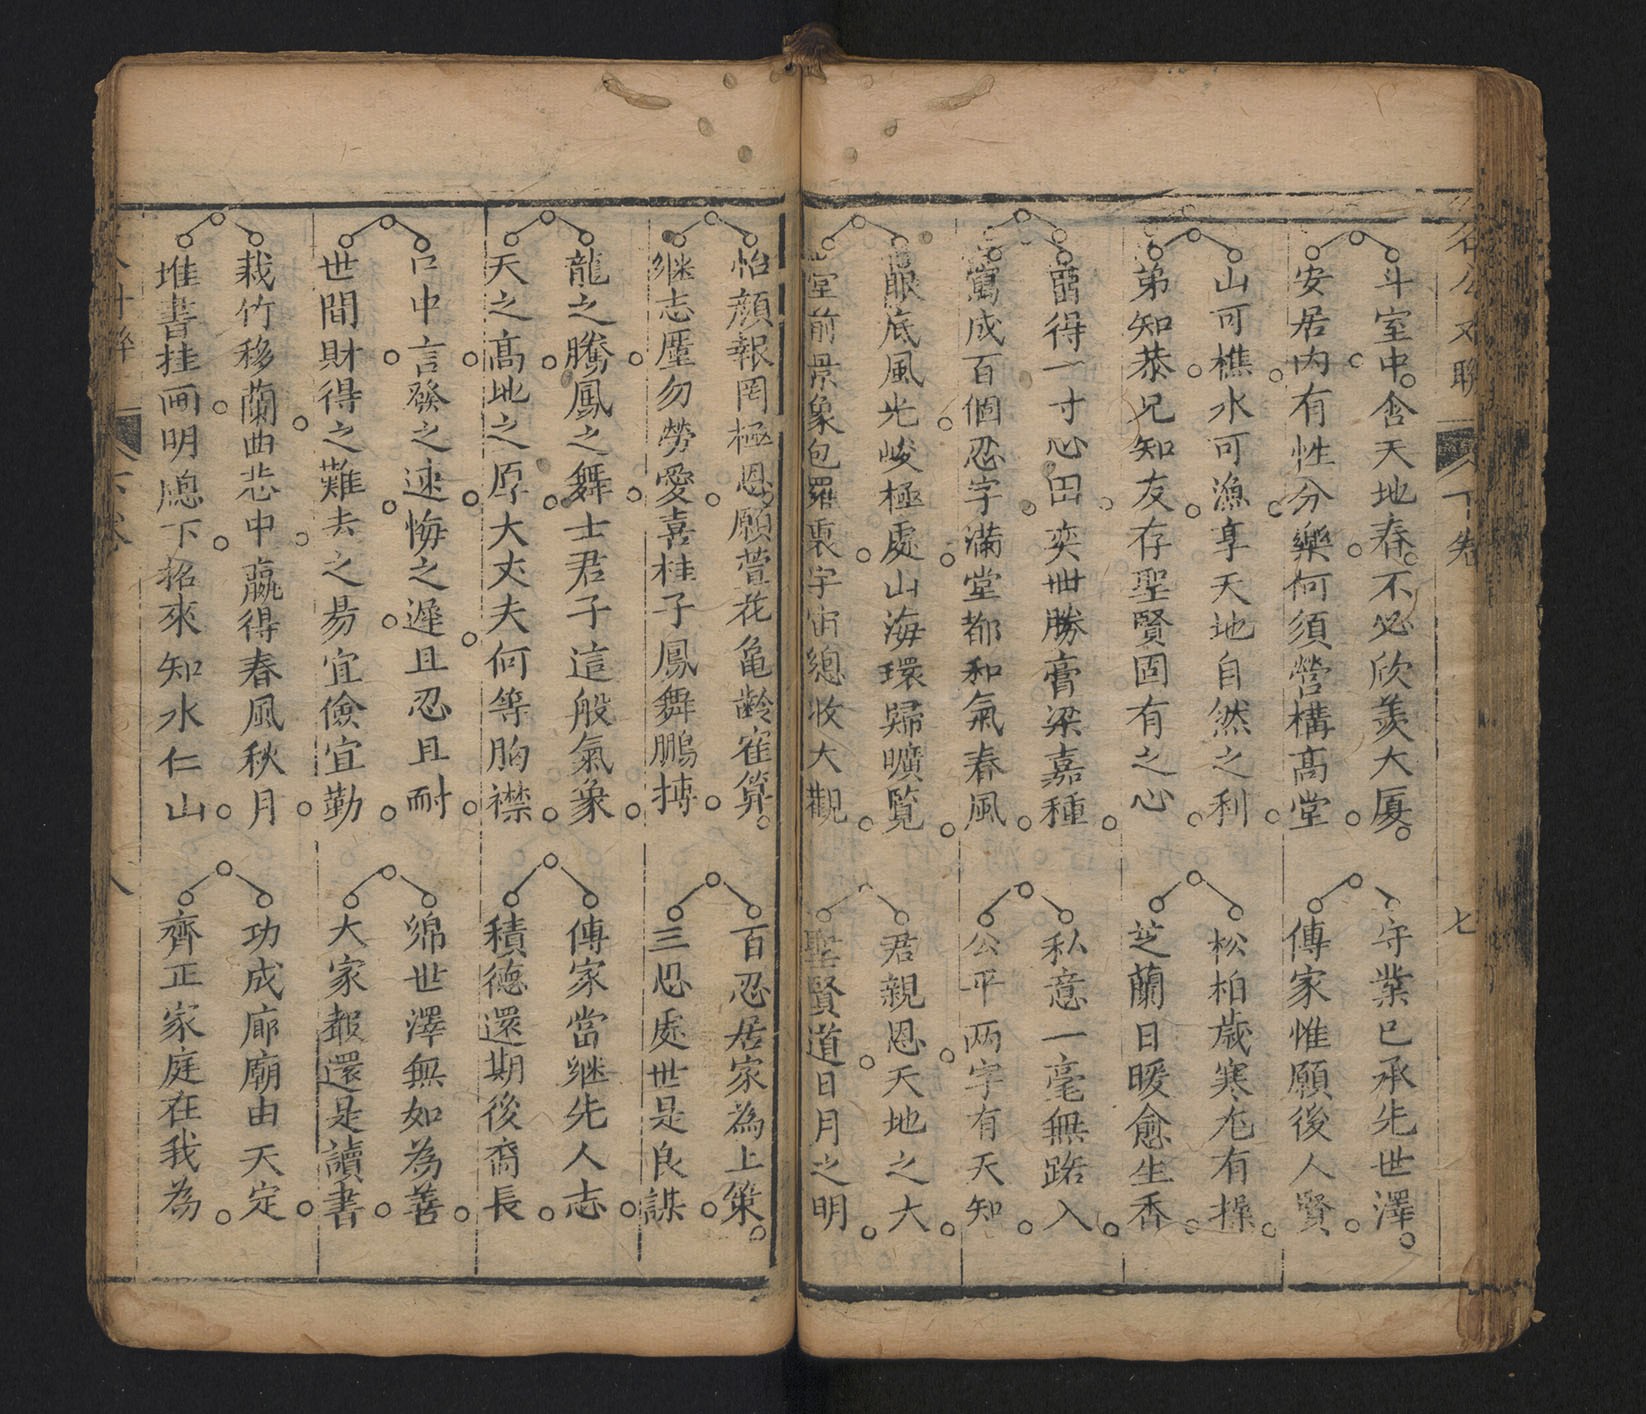 公文聯 下卷 七
斗室中含天地春不必欣羨大厦
安居内有性分樂何須營構高堂
守業已承先世澤
傳家惟願後人賢
山可樵水可漁享天地自然之利
弟知恭兄知友存聖賢固有之心
松柏歲寒尤有操
芝蘭日暖愈生香
畱得一寸心田奕世勝膏粱嘉種
寫成百個忍字滿堂都和氣春風
私意一毫無路入
公平两字有天知
眼底風光峻極處山海環歸曠覽
堂前景象包羅裏宇宙總收大觀
君親恩天地之大
聖賢道日月之明
怡顔報罔極恩願萱花亀齡隺算
继志勿勞愛喜桂子鳳舞鵬摶
百忍居家為上策
三思處世是良謀
龍之騰鳳之舞士君子這般氣象
天之高地之厚大丈夫何等胸襟
傳家當继先人志
積德還期後裔長
口中言發之速悔之遲且忍且耐
世間財得之難去之易宜儉宜勤
綿世澤無如為善
大家報還是讀書
栽竹移蘭曲悲中贏得春風秋月
堆書挂画明牕下招來知水仁山
功成廊廟由天定
齊正家庭在我為
下卷 八